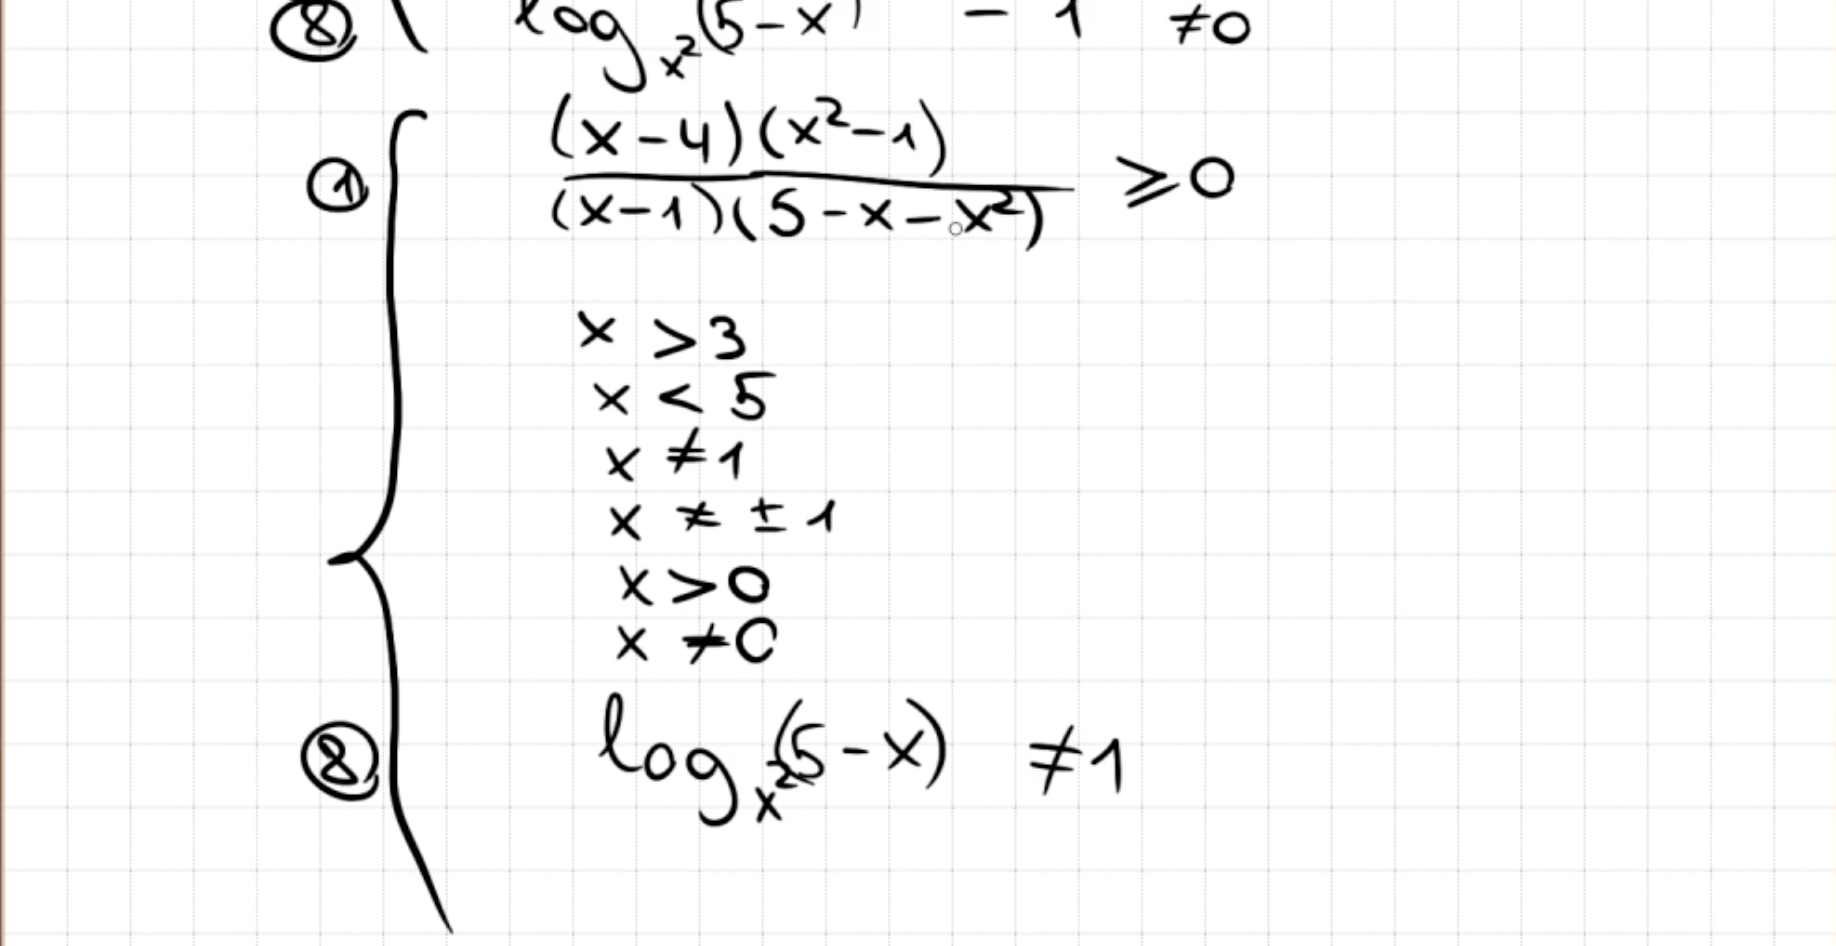 ⑧ log_{x²}(5-x) - 1 ≠0
① (x-4)(x²-1)
(x-1)(5-x-x²) ⩾0
x >3
x < 5
x ≠1
x ≠ ±1
x>0
x ≠0
⑧ log_{x²}(5-x) ≠1